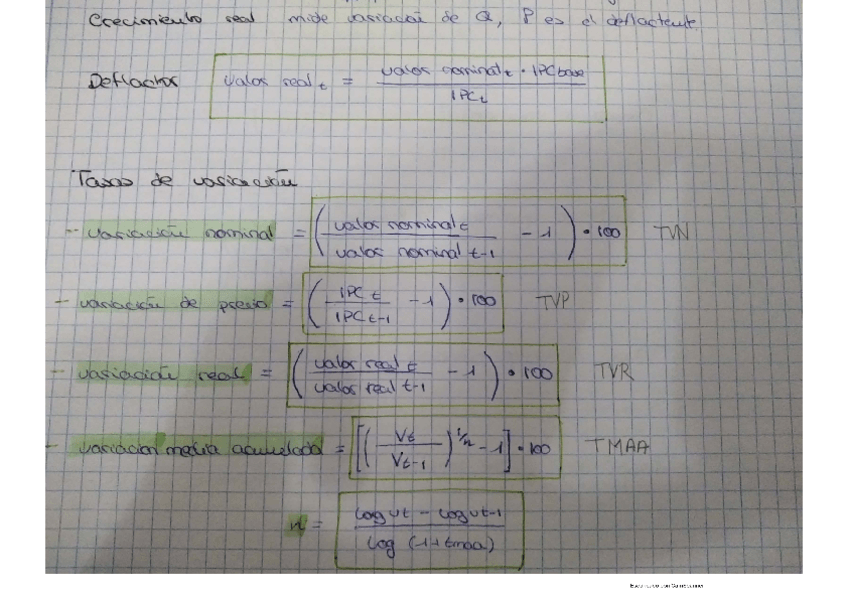 Crecimiento real mide variación de Q, P es el deflactante
Deflactor valor real t = valor nominal t · IPC base / IPC t
Tasas de variación
- variación nominal = ( valor nominal t / valor nominal t-1 - 1 ) · 100 TVN
- variación de precio = ( IPC t / IPC t-1 - 1 ) · 100 TVP
- variación real = ( valor real t / valor real t-1 - 1 ) · 100 TVR
- variación media acumulada = [ ( Vt / Vt-1 )^1/n - 1 ] · 100 TMAA
n = log vt - log vt-1 / log (1+tmaa)
Escaneado con CamScanner